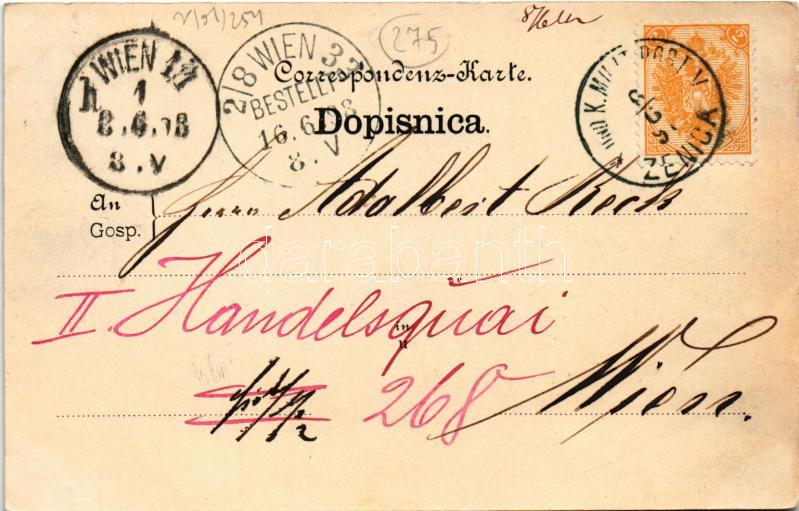 275
WIEN 1/1
1
8.6.98
8.V
2/8 WIEN 3
BESTELLT
16.6.98
8.V
Correspondenz-Karte.
Dopisnica.
2
UND K. MILIT. POST V
ZENICA
An
Gosp.
Herrn Adalbert Reck
darabanth
II. Handelsquai
in
u
268
Wien.